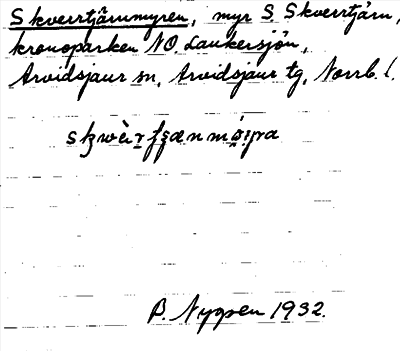 Skverrtjärnmyren, myr S Skverrtjärn,
kronoparken NO. Laukersjön,
Arvidsjaur sn, Arvidsjaur tg, Norrb. l.
B. Nygren 1932.